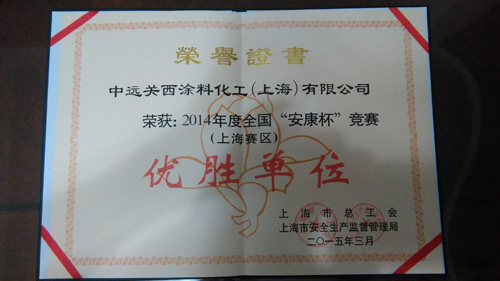 榮譽證書
中远关西涂料化工(上海)有限公司
荣获:2014年度全国“安康杯”竞赛
(上海赛区)
优胜单位
上海市总工会
上海市安全生产监督管理局
二〇一五年三月